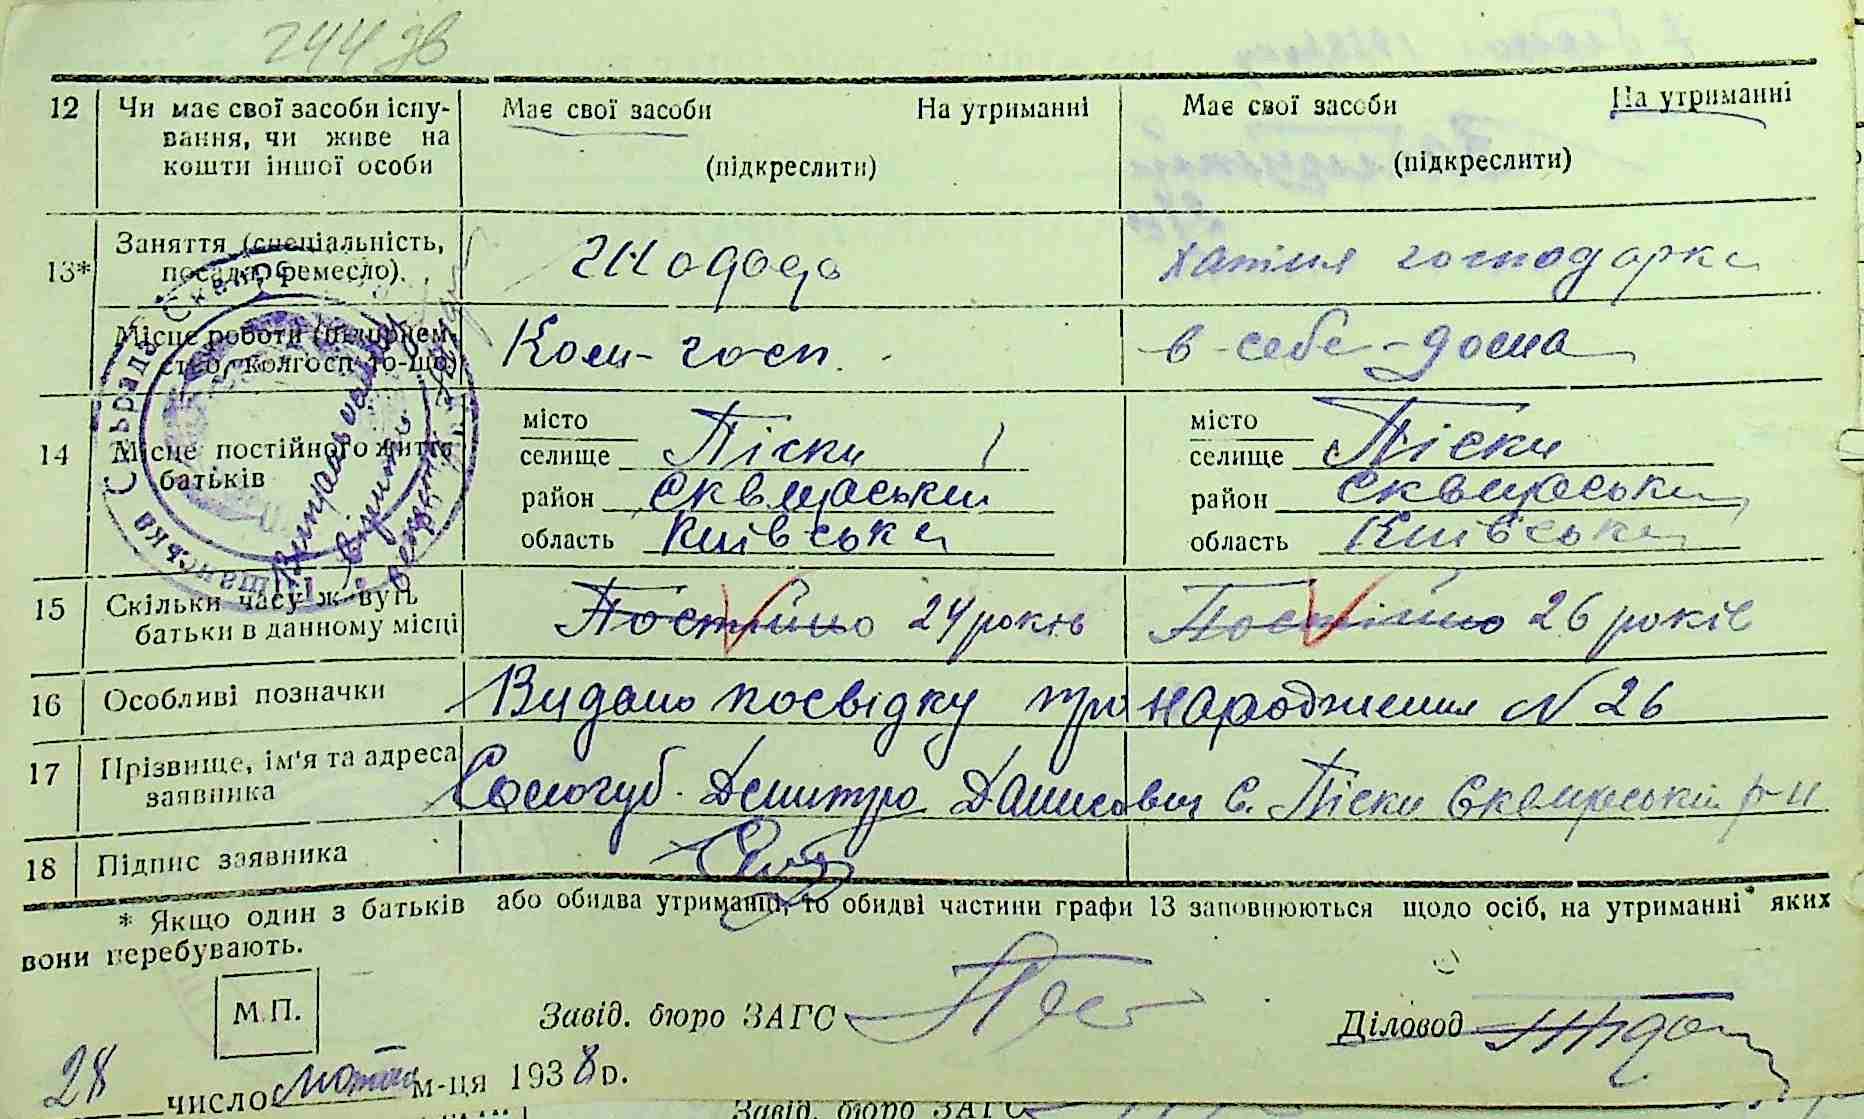 244 зв
12 Чи має свої засоби існу- Має свої засоби На утриманні Має свої засоби На утриманні
вання, чи живе на
кошти іншої особи (підкреслити) (підкреслити)
13* Заняття (спеціальність,
посада, ремесло). хатня господарка
Місце роботи (підприєм- Кол-госп. в себе-дома
ство, колгосп то-що)
14 Місце постійного життя
батьків
місто місто
селище Піски селище Піски
район Сквирський район Сквирський
область Київська область Київська
15 Скільки часу живуть Постійно 24 років Постійно 26 років
батьки в данному місці
16 Особливі позначки Видано посвідку про народження N 26
17 Прізвище, ім'я та адреса
заявника Сологуб Дмитро Данилович с. Піски Сквирський р-н
18 Підпис заявника
* Якщо один з батьків або обидва утриманці, то обидві частини графи 13 заповнюються щодо осіб, на утриманні яких
вони перебувають.
М.П. Завід. бюро ЗАГС Діловод
28 число лютий м-ця 1938 р.
Завід. бюро ЗАГС